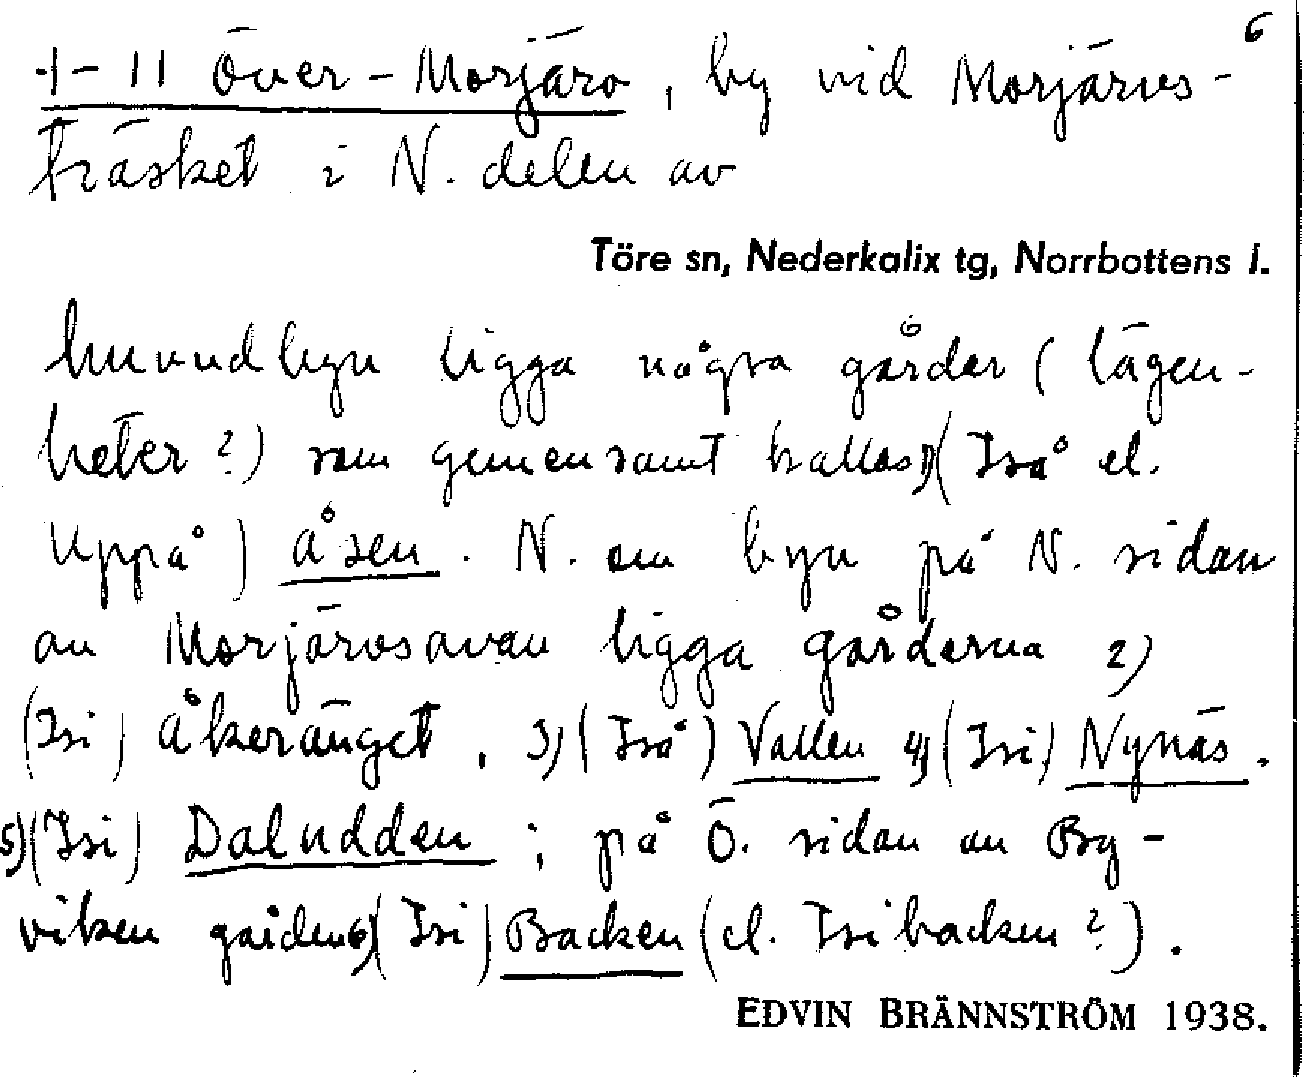 6
1–11 Över-Morjärv, by vid Morjärvs-
träsket i N. delen av
Töre sn, Nederkalix tg, Norrbottens l.
huvudbyn ligga några gårdar (lägen-
heter?) som gemensamt kallas 1) (Iså el.
Uppå) åsen. N. om byn på N. sidan
av Morjärvsavan ligga gårdarna 2)
(Isi) åkeränget, 3) (Iså) Vallen 4) (Isi) Nynäs.
5) (Isi) Daludden; på Ö. sidan av By-
viken gården 6) (Isi) Backen (el. Isibacken?).
EDVIN BRÄNNSTRÖM 1938.